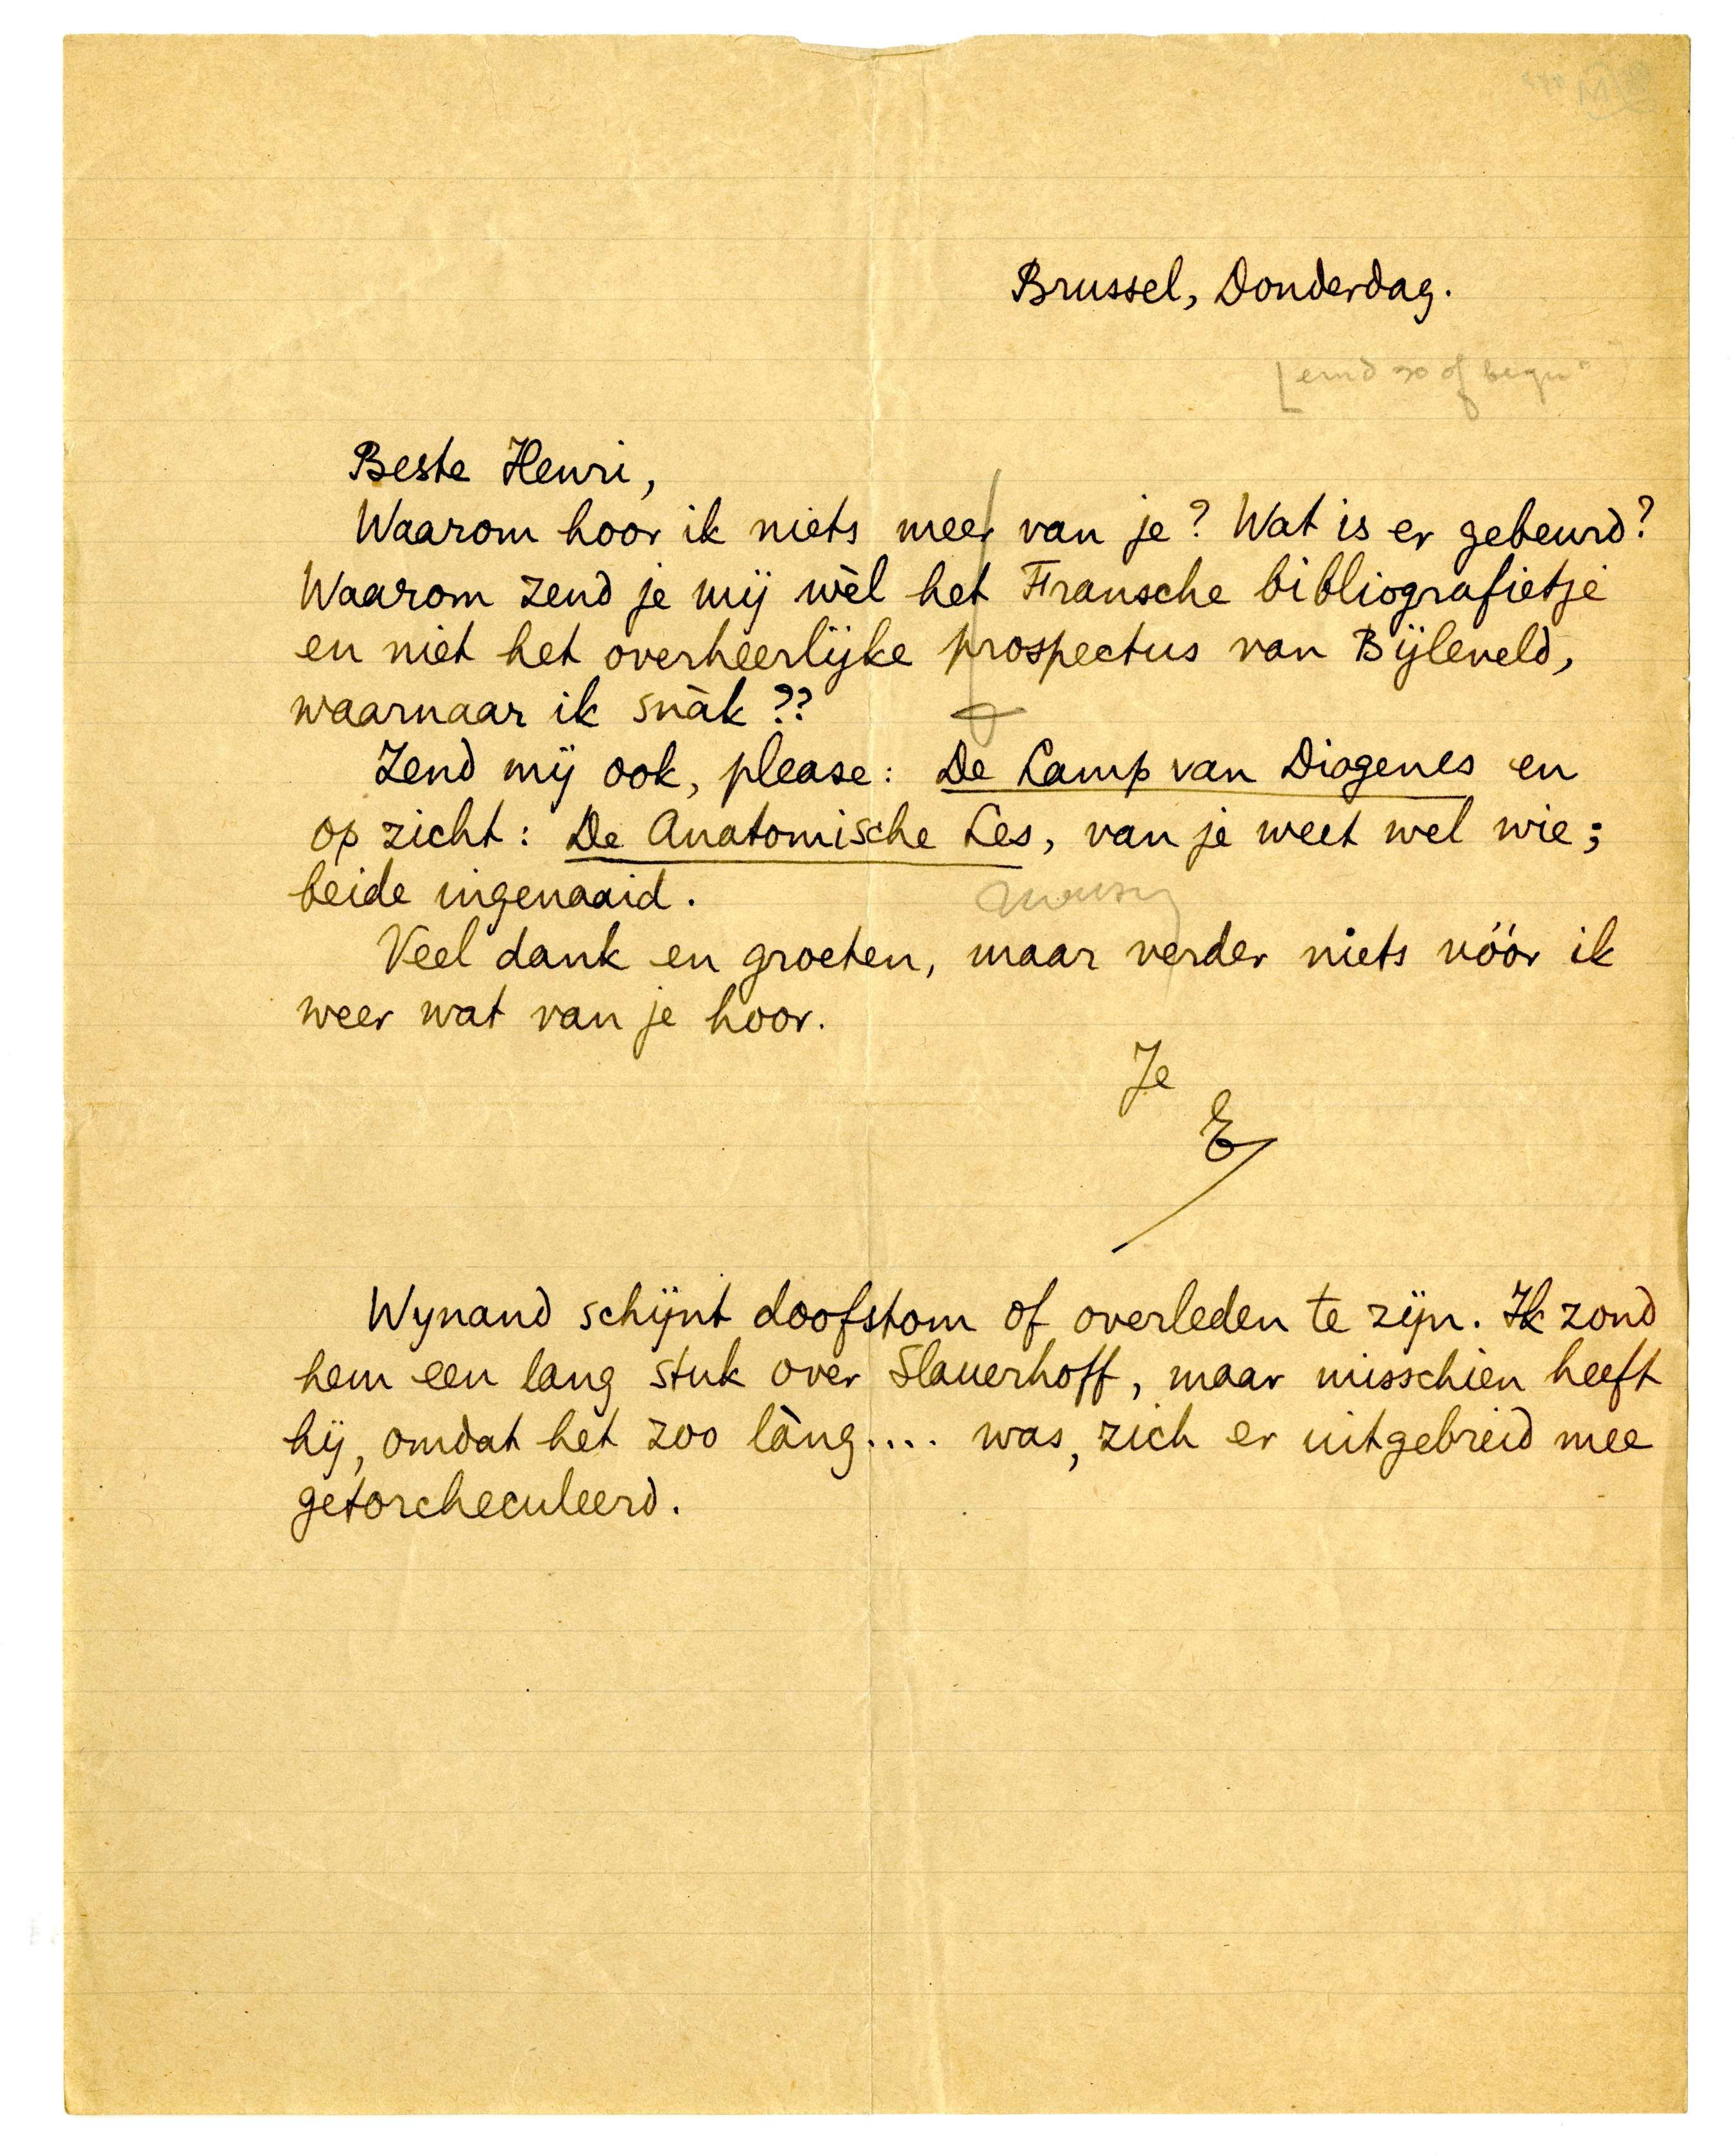 Brussel, Donderdag.
Beste Henri,
Waarom hoor ik niets meer van je? Wat is er gebeurd?
Waarom zend je mij wèl het Fransche bibliografietje
en niet het overheerlijke prospectus van Bijleveld,
waarnaar ik snàk??
Zend mij ook, please: De Lamp van Diogenes en
op zicht: De Anatomische Les, van je weet wel wie;
beide ingenaaid.
Veel dank en groeten, maar verder niets vóór ik
weer wat van je hoor.
Je
E
Wynand schijnt doofstom of overleden te zijn. Ik zond
hem een lang stuk over Slauerhoff, maar misschien heeft
hij, omdat het zoo làng.... was, zich er uitgebreid mee
getorcheculeerd.